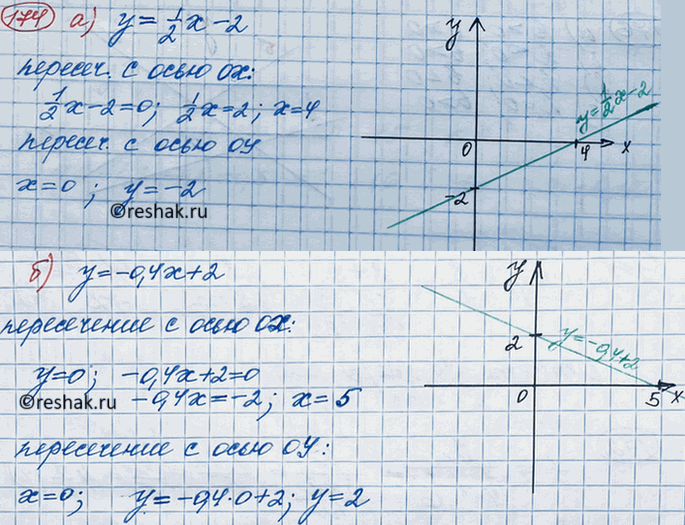 174 а) y = 1/2 x - 2
пересеч. с осью OX:
1/2 x - 2 = 0; 1/2 x = 2; x = 4
пересеч. с осью OY
x = 0; y = -2
©reshak.ru
y
y = 1/2 x - 2
0
4
x
-2
б) y = -0,4x + 2
пересечение с осью OX:
y = 0; -0,4x + 2 = 0
©reshak.ru
-0,4x = -2; x = 5
пересечение с осью OY:
x = 0; y = -0,4·0 + 2; y = 2
y
2
y = -0,4 + 2
0
5
x